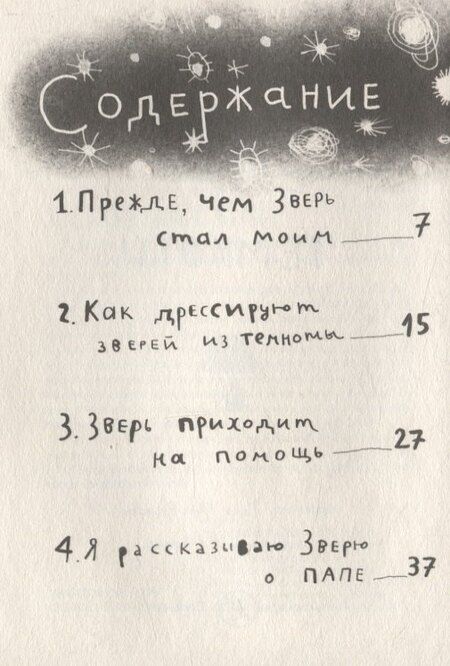 Содержание
1. Прежде, чем Зверь
стал моим 7
2. Как дрессируют
зверей из темноты 15
3. Зверь приходит
на помощь 27
4. Я рассказываю Зверю
о папе 37